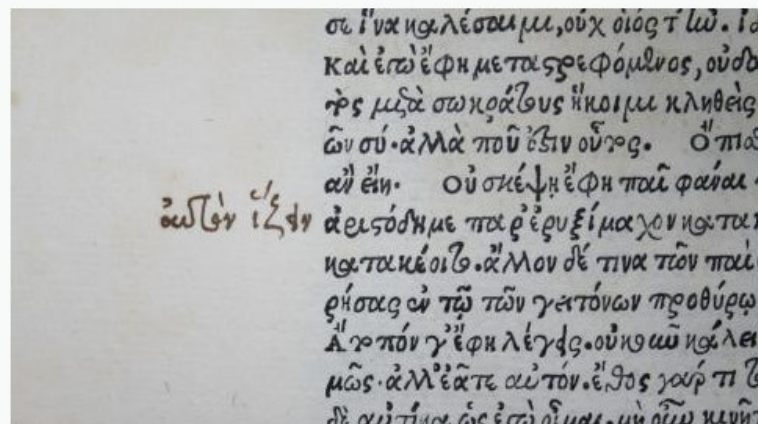 σε ἵνα καλέσαιμι, οὐχ οἷός τ' ἰῶ. ἰδ
καὶ ἐγὼ ἔφη μεταστρεφόμενος, οὐδα
μετὰ σωκράτους ἥκοιμι κληθεὶς
ὢν σύ. ἀλλὰ ποῦ ἐστιν οὗτος. Ὄπισ
ἂν εἴη. Οὐ σκέψῃ ἔφη παῖ φάναι
αὐτὸν ἵζειν
ἀριστόδημε παρ' ἐρυξίμαχον κατακ
κατακέοιτο. ἄλλον δέ τινα τῶν παί
ρήσας ἐν τῷ τῶν γειτόνων προθύρῳ
Ἄτοπόν γ' ἔφη λέγεις. οὔκουν κάλει
μῶς. ἀλλ' ἐᾶτε αὐτόν. ἔθος γάρ τι τ
δὲ αὐτίκα ὡς ἐγὼ οἶμαι. μὴ οὖν κινῆτ